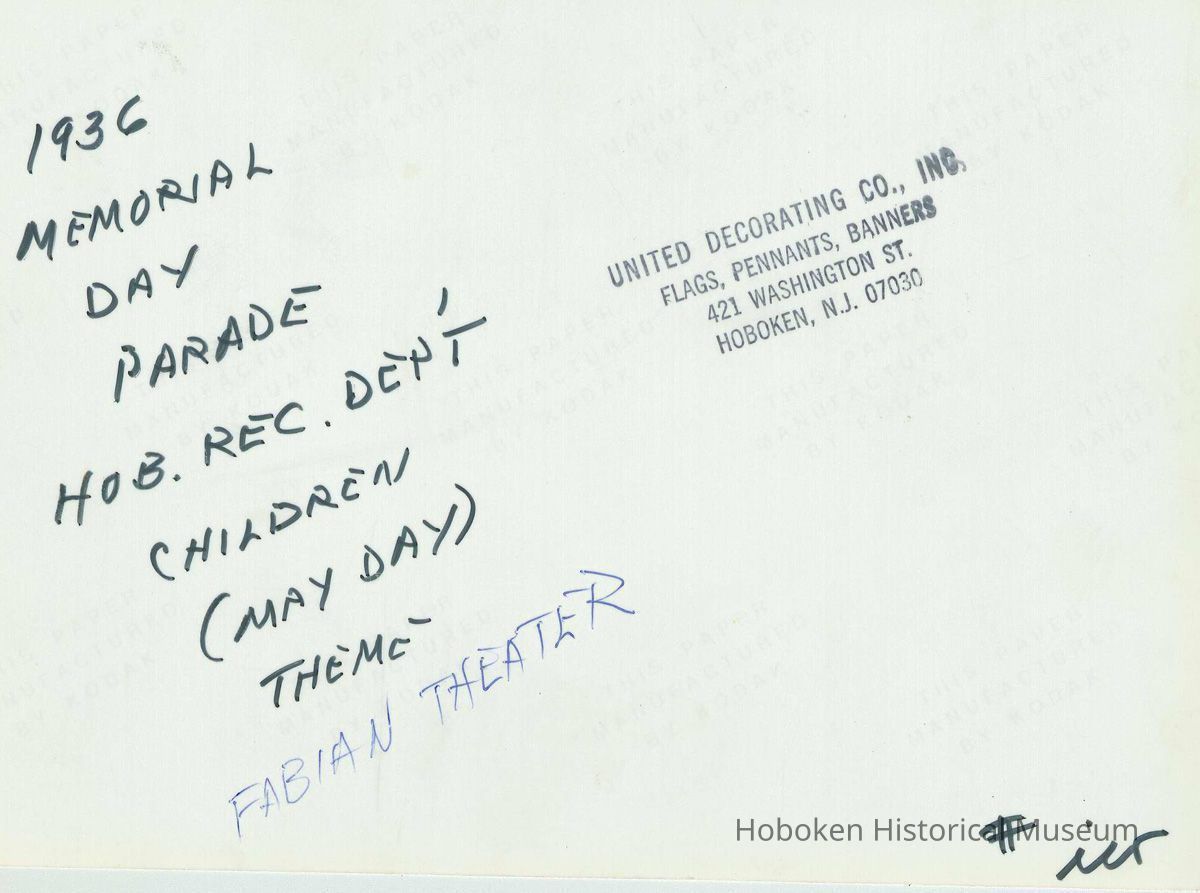 1936
MEMORIAL
DAY
PARADE
HOB. REC. DEP'T
CHILDREN
(MAY DAY)
THEME
FABIAN THEATER
UNITED DECORATING CO., INC.
FLAGS, PENNANTS, BANNERS
421 WASHINGTON ST.
HOBOKEN, N.J. 07030
THIS PAPER
MANUFACTURED
BY KODAK
Hoboken Historical Museum
#